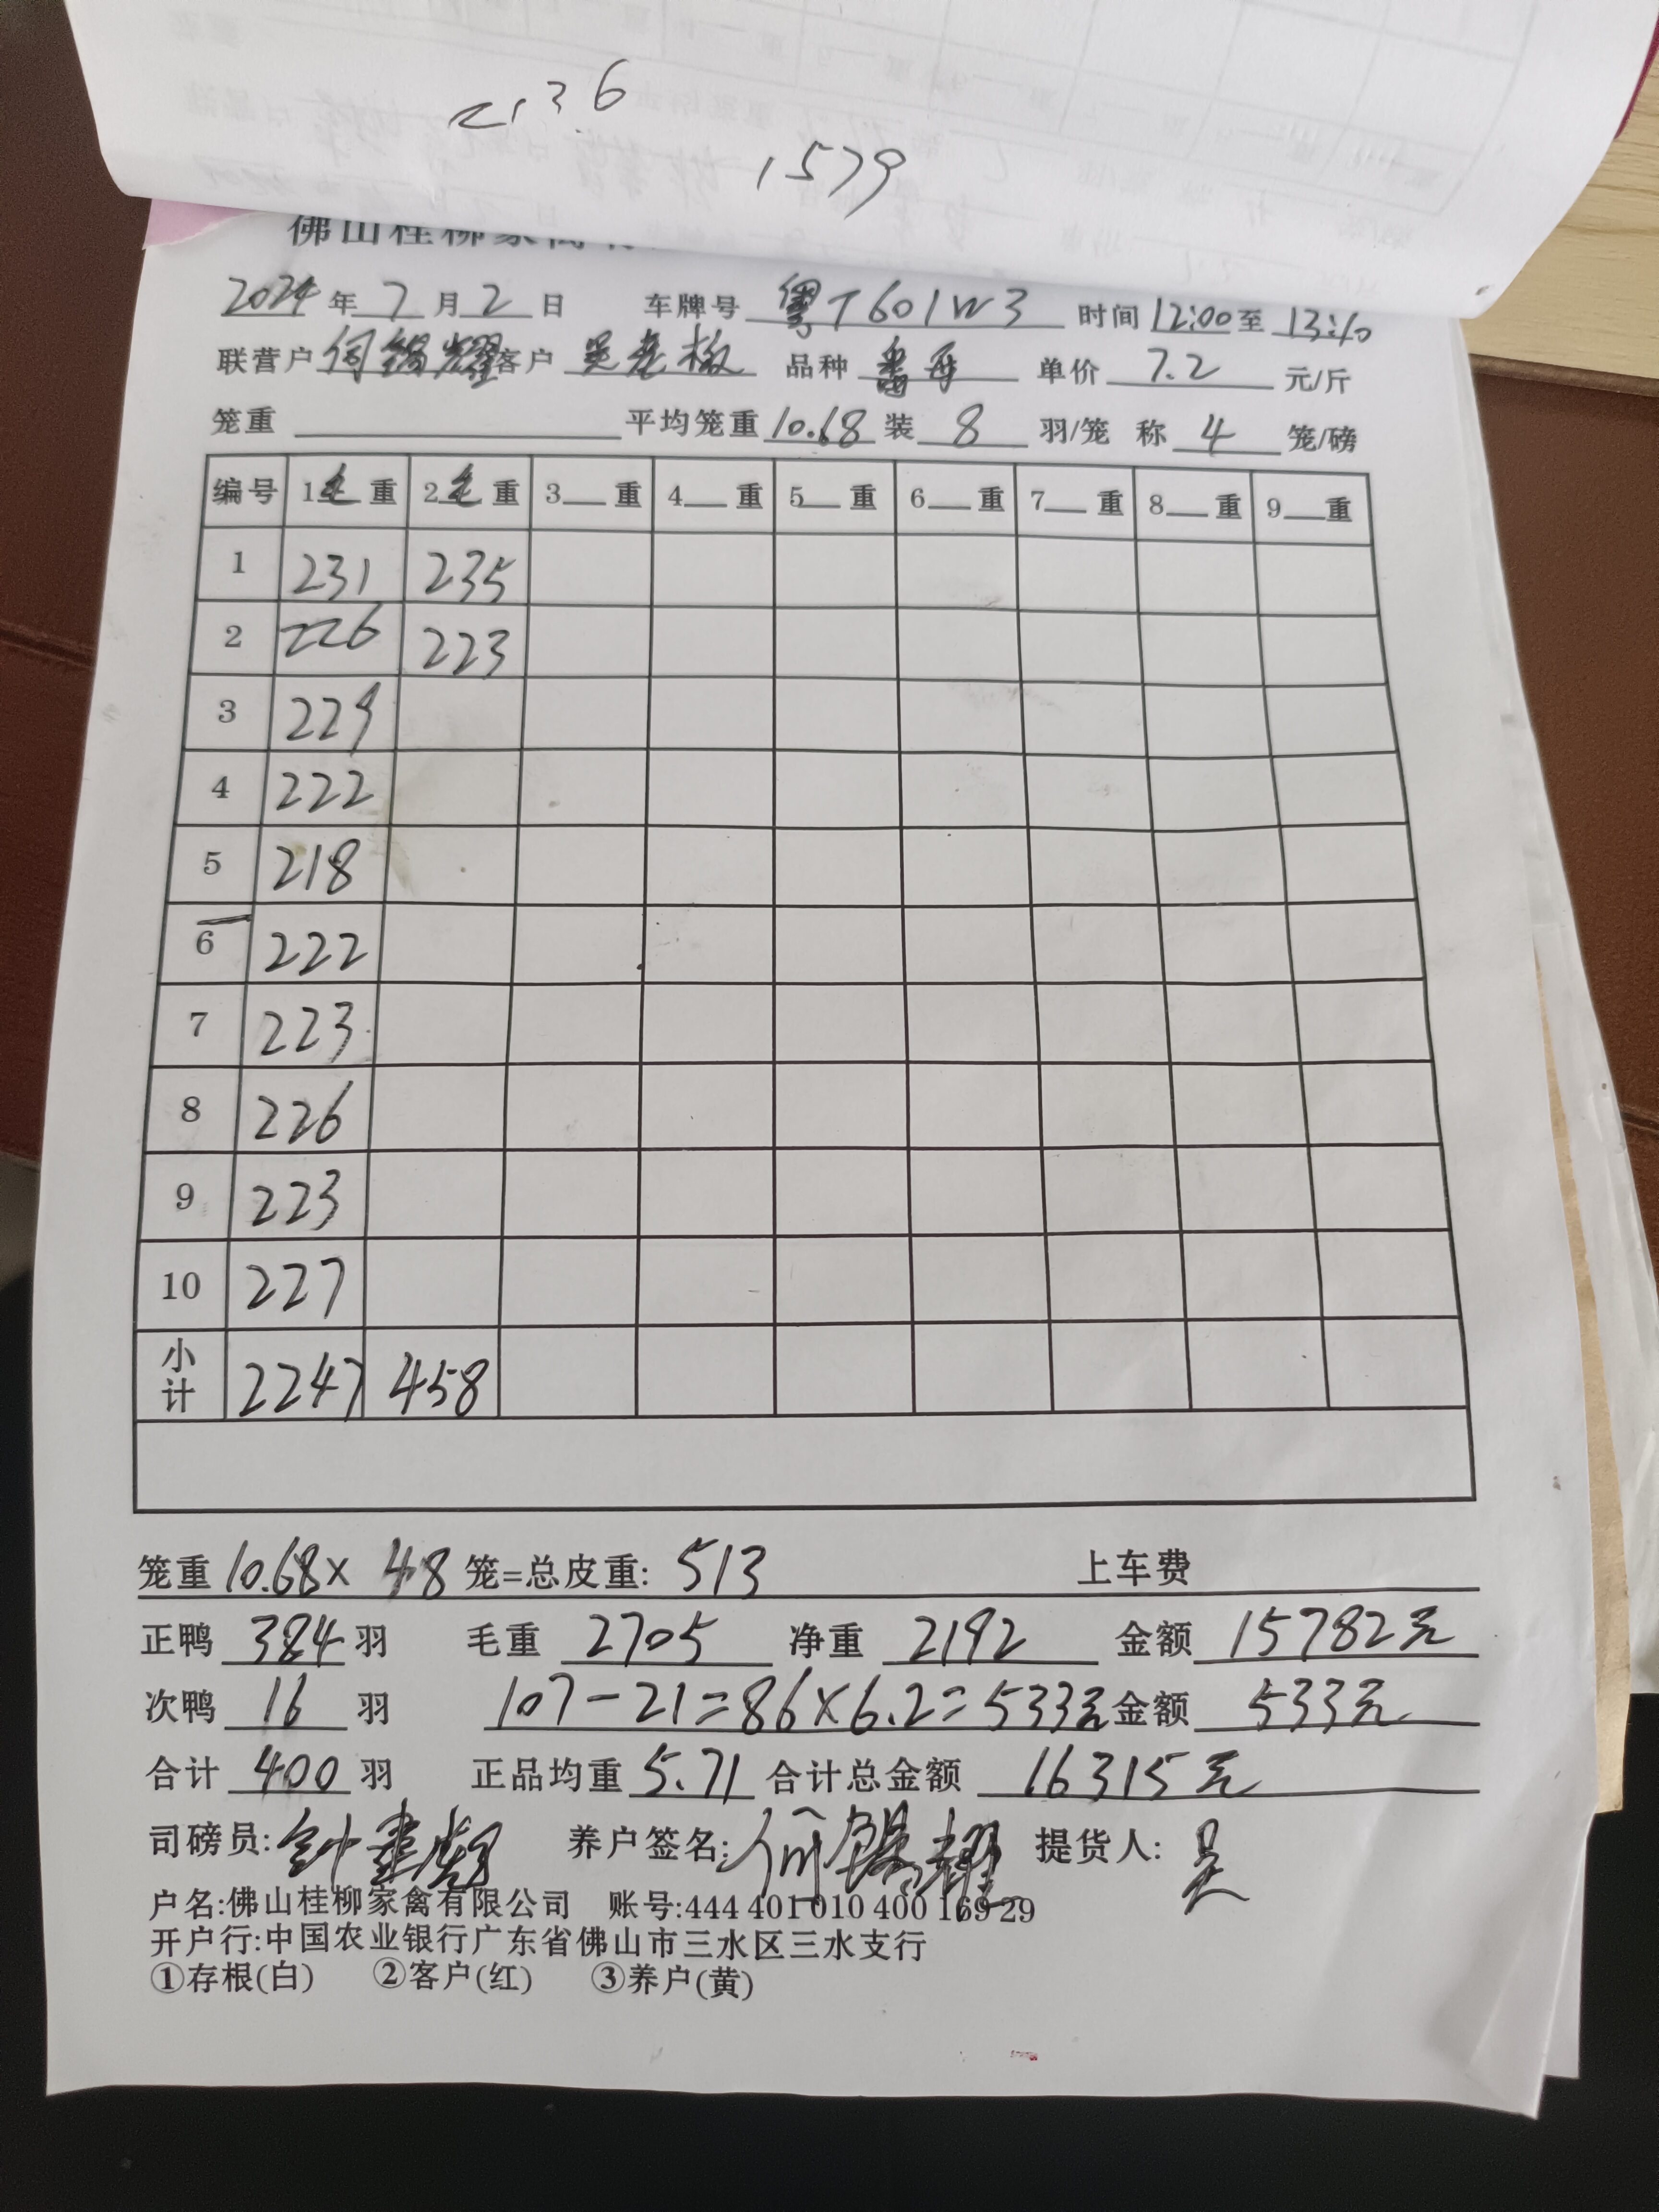 2136
1579
佛山桂柳家禽
2024年7月2日 车牌号 粤T601W3 时间12:00至13:10
联营户 何锡耀 客户 吴老板 品种 番母 单价 7.2 元/斤
笼重 平均笼重 10.68 装 8 羽/笼 称 4 笼/磅
编号 1毛重 2毛重 3__重 4__重 5__重 6__重 7__重 8__重 9__重
1 231 235
2 226 223
3 229
4 222
5 218
6 222
7 223
8 226
9 223
10 227
小计 2247 458
笼重 10.68× 48 笼=总皮重: 513 上车费
正鸭 384 羽 毛重 2705 净重 2192 金额 15782元
次鸭 16 羽 107-21=86×6.2=533元 金额 533元
合计 400 羽 正品均重 5.71 合计总金额 16315元
司磅员: 养户签名: 何锡耀 提货人: 吴
户名:佛山桂柳家禽有限公司 账号:444 401 010 400 169 29
开户行:中国农业银行广东省佛山市三水区三水支行
①存根(白) ②客户(红) ③养户(黄)